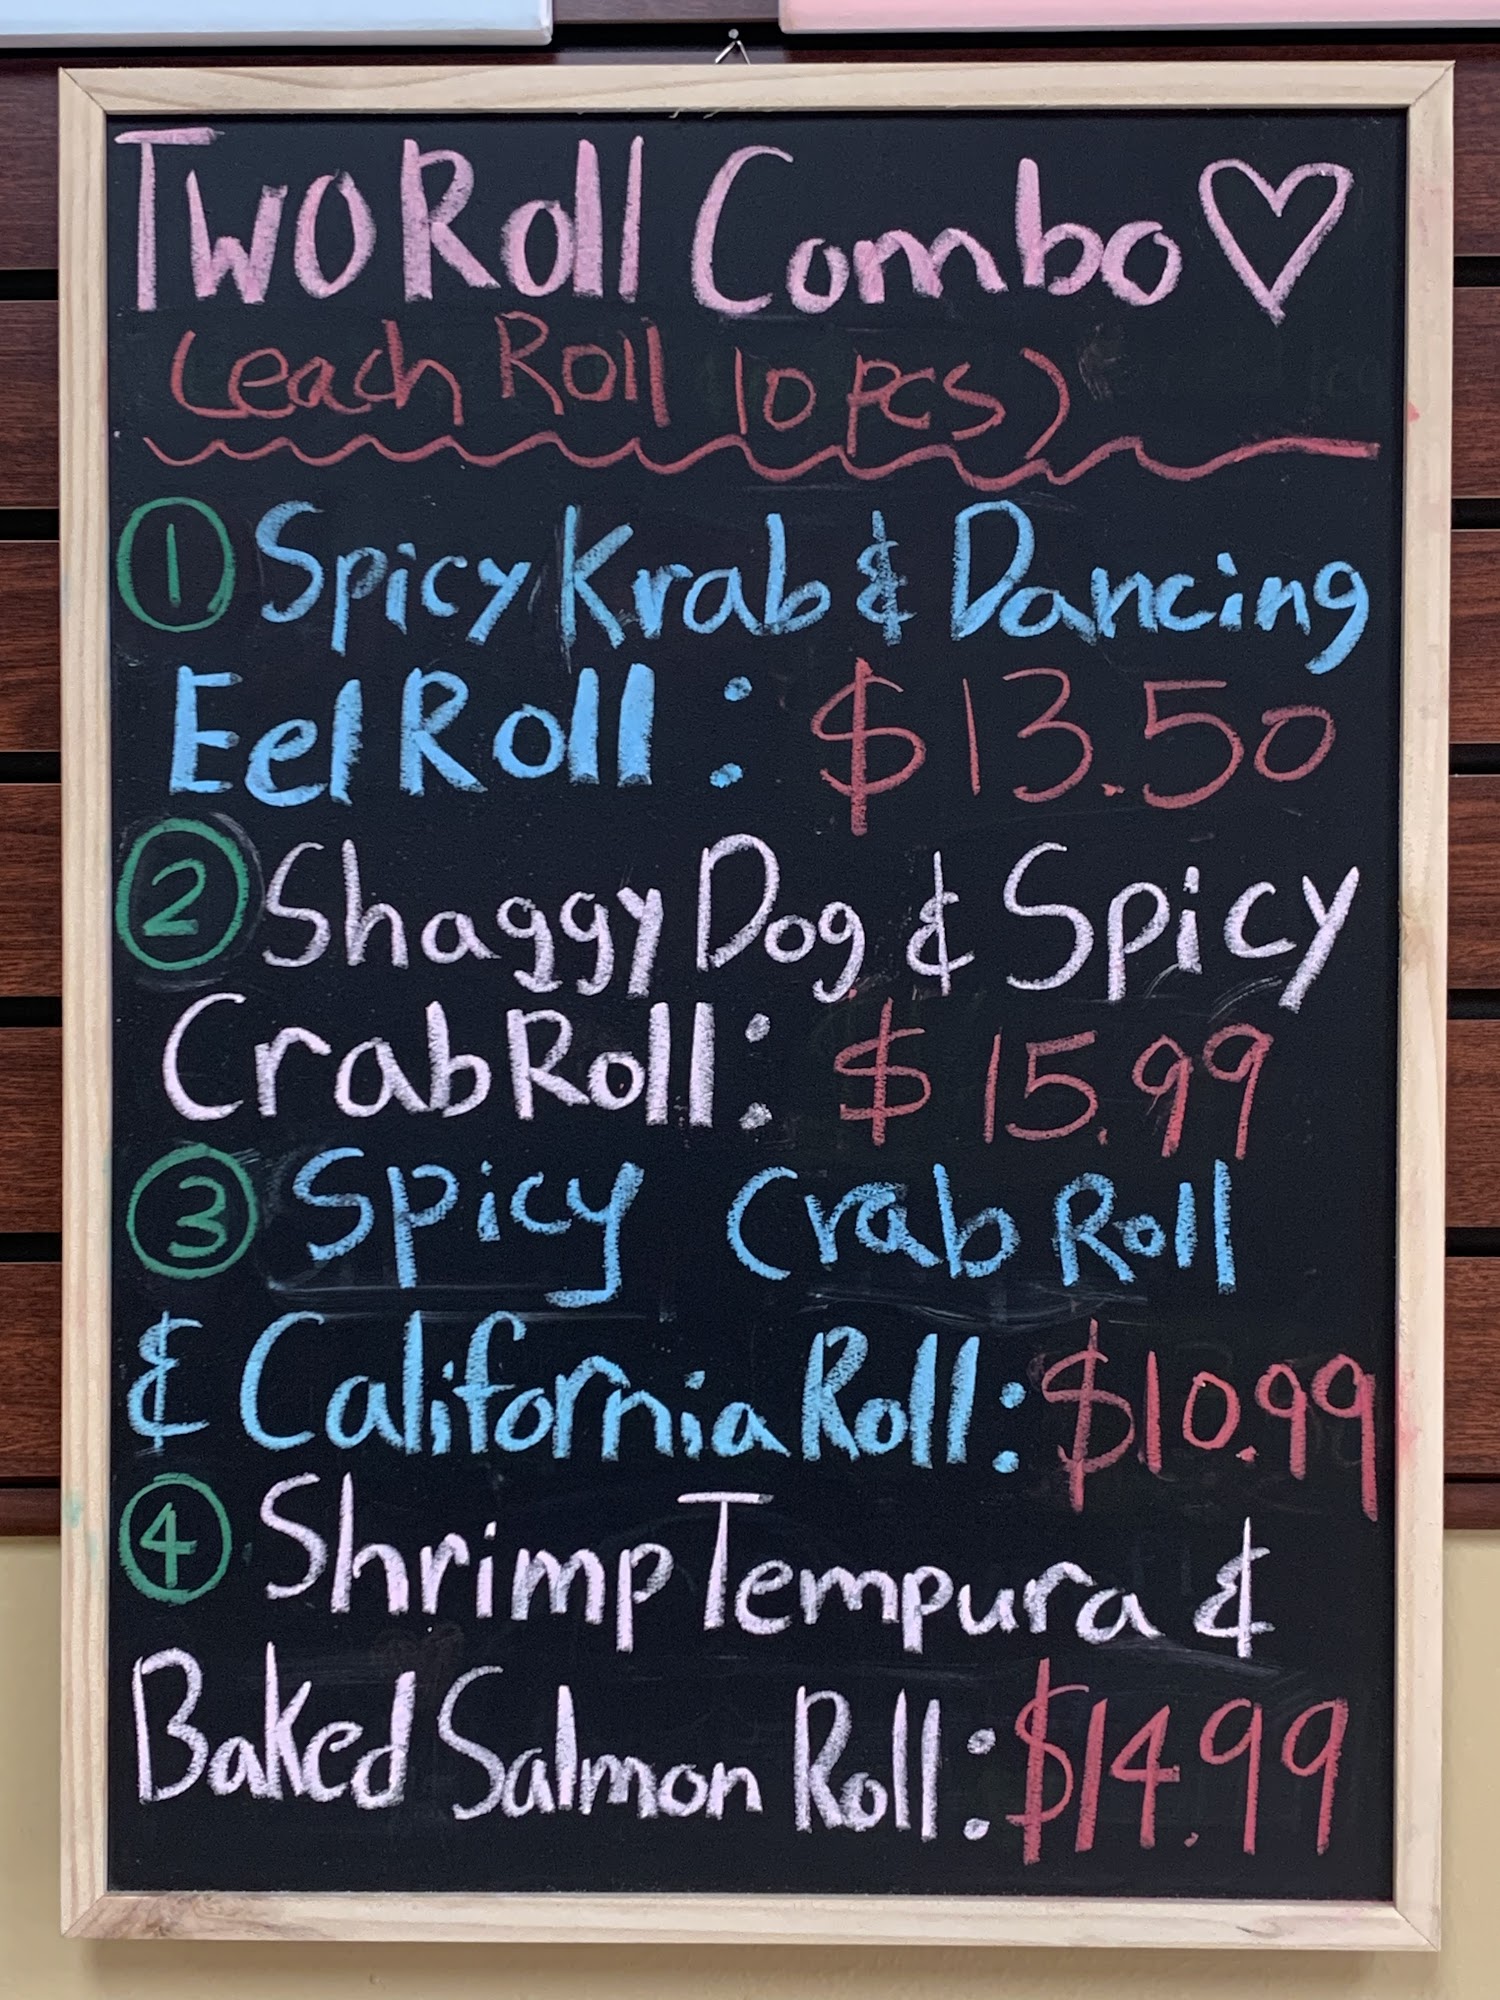 Two Roll Combo ♡
(each Roll 10 PCS)
① Spicy Krab & Dancing
Eel Roll: $13.50
② Shaggy Dog & Spicy
Crab Roll: $15.99
③ Spicy Crab Roll
& California Roll: $10.99
④ Shrimp Tempura &
Baked Salmon Roll: $14.99